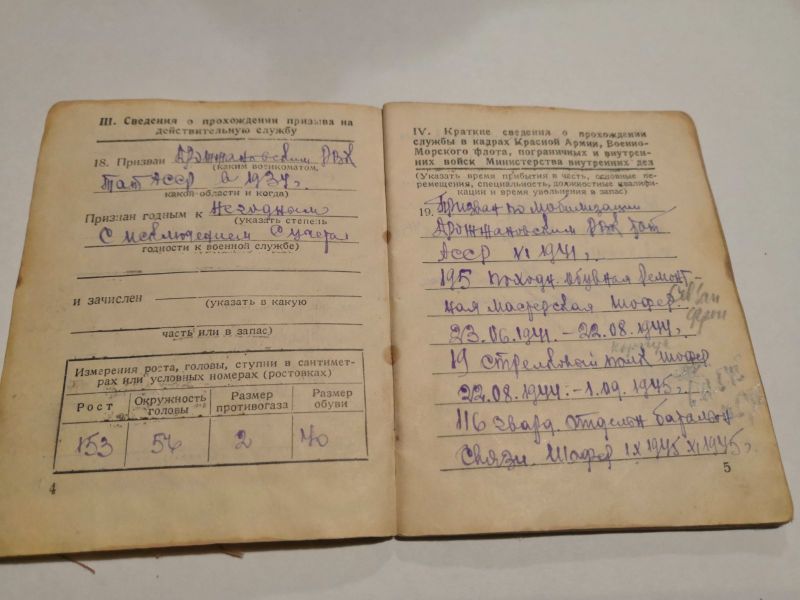 III. Сведения о прохождении призыва на
действительную службу
18. Призван Дрожжановским РВК
(каким военкоматом,
Тат АССР в 1937 г.
какой области и когда)
Признан годным к Негодным
(указать степень
с исключением с учета
годности к военной службе)
и зачислен
(указать в какую
часть или в запас)
Измерения роста, головы, ступни в сантимет-
рах или условных номерах (ростовках)
Рост Окружность головы Размер противогаза Размер обуви
153 56 2 40
4
IV. Краткие сведения о прохождении
службы в кадрах Красной Армии, Военно-
Морского флота, пограничных и внутрен-
них войск Министерства внутренних дел
(Указать время прибытия в часть, основные пе-
ремещения, специальность, должностные квалифи-
кации и время увольнения в запас)
19. Призван по мобилизации
Дрожжановским РВК Тат
АССР VI 1941 г.
195 походн. обувная ремонт-
ная мастерская шофер
23.06.1941. – 22.08.1944 г.
19 стрелковый полк шофер
22.08.1944. – 1.09.1945 г.
116 гвард. отдельн батальон
связи. Шофер IX 1945 XI 1945 г.
5